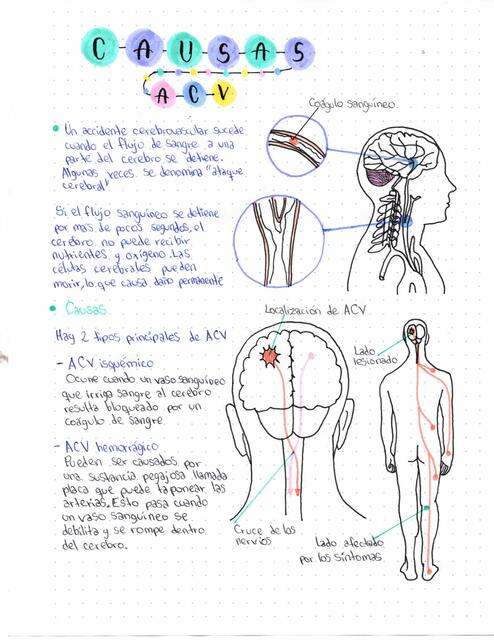 CAUSAS
ACV
Coágulo sanguíneo
Un accidente cerebrovascular sucede
cuando el flujo de sangre a una
parte del cerebro se detiene.
Algunas veces, se denomina "ataque
cerebral"
Si el flujo sanguíneo se detiene
por más de pocos segundos, el
cerebro no puede recibir
nutrientes y oxígeno. Las
células cerebrales pueden
morir, lo que causa daño permanente
Causas
Hay 2 tipos principales de ACV
- ACV isquémico
Ocurre cuando un vaso sanguíneo
que irriga sangre al cerebro
resulta bloqueado por un
coágulo de sangre
- ACV hemorrágico
Pueden ser causados por
una sustancia pegajosa llamada
placa que puede taponear las
arterias. Esto pasa cuando
un vaso sanguíneo se
debilita y se rompe dentro
del cerebro.
Localización de ACV
Lado
lesionado
Cruce de los
nervios
Lado afectado
por los síntomas